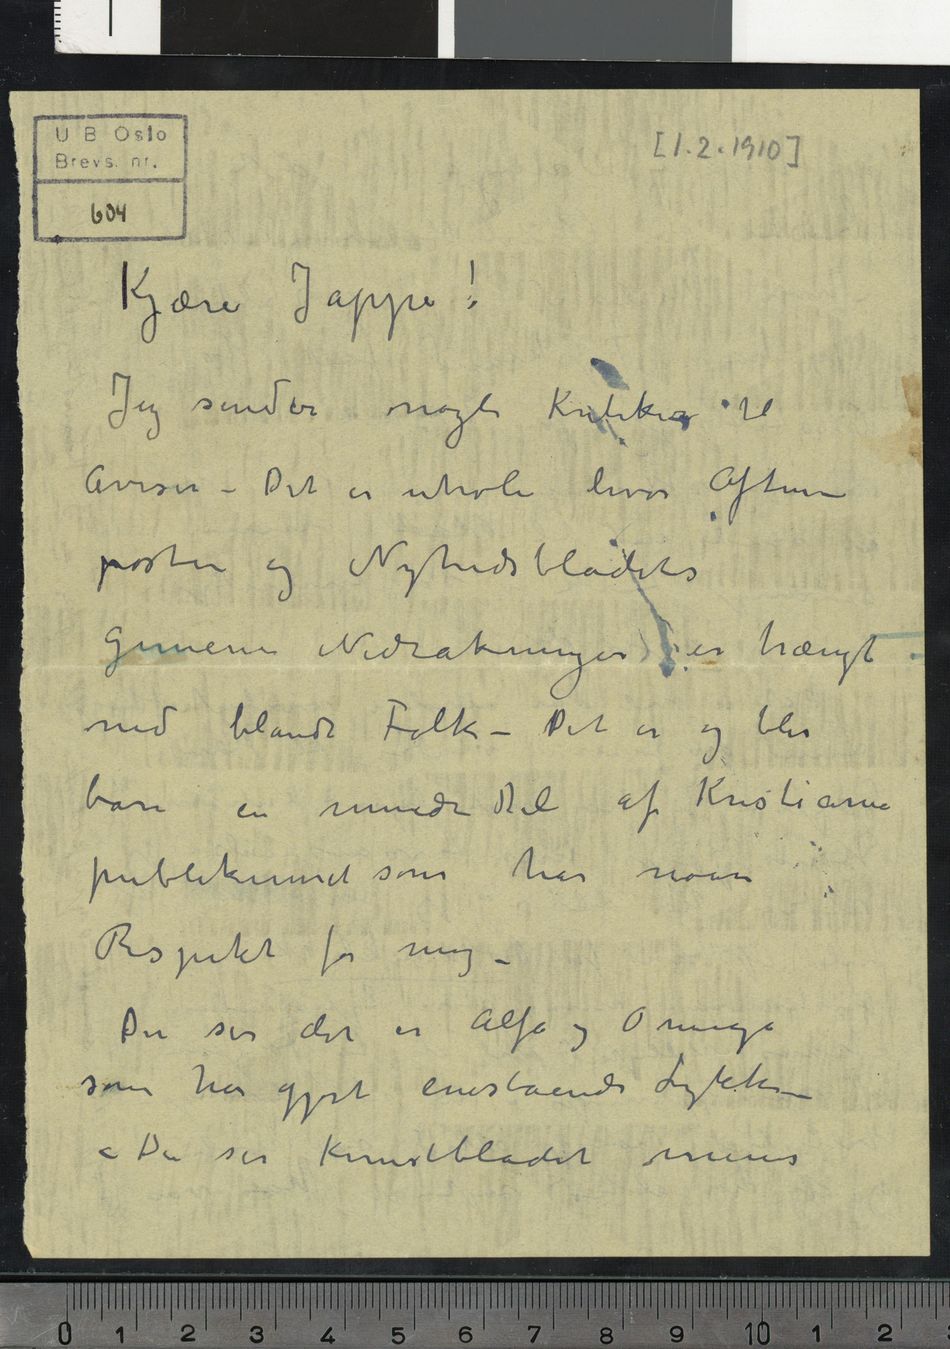 U B Oslo
Brevs. nr.
604
[1.2.1910]
Kjære Jappe!
Jeg sender nogle Kritiker til
Aviser – Det er utrolig hvor Aften
posten og Nyhedsbladets
gemene Nedrakninger er trængt
ned blandt Folk – Det er og blir
bare en mindre Del af Kristiania
publikummet som har noen
Respekt for mig –
Du ser det er Alfa og Omega
som har gjort enestaaende Lykke –
– Du ser Kunstbladet menes
0 1 2 3 4 5 6 7 8 9 10 1 2